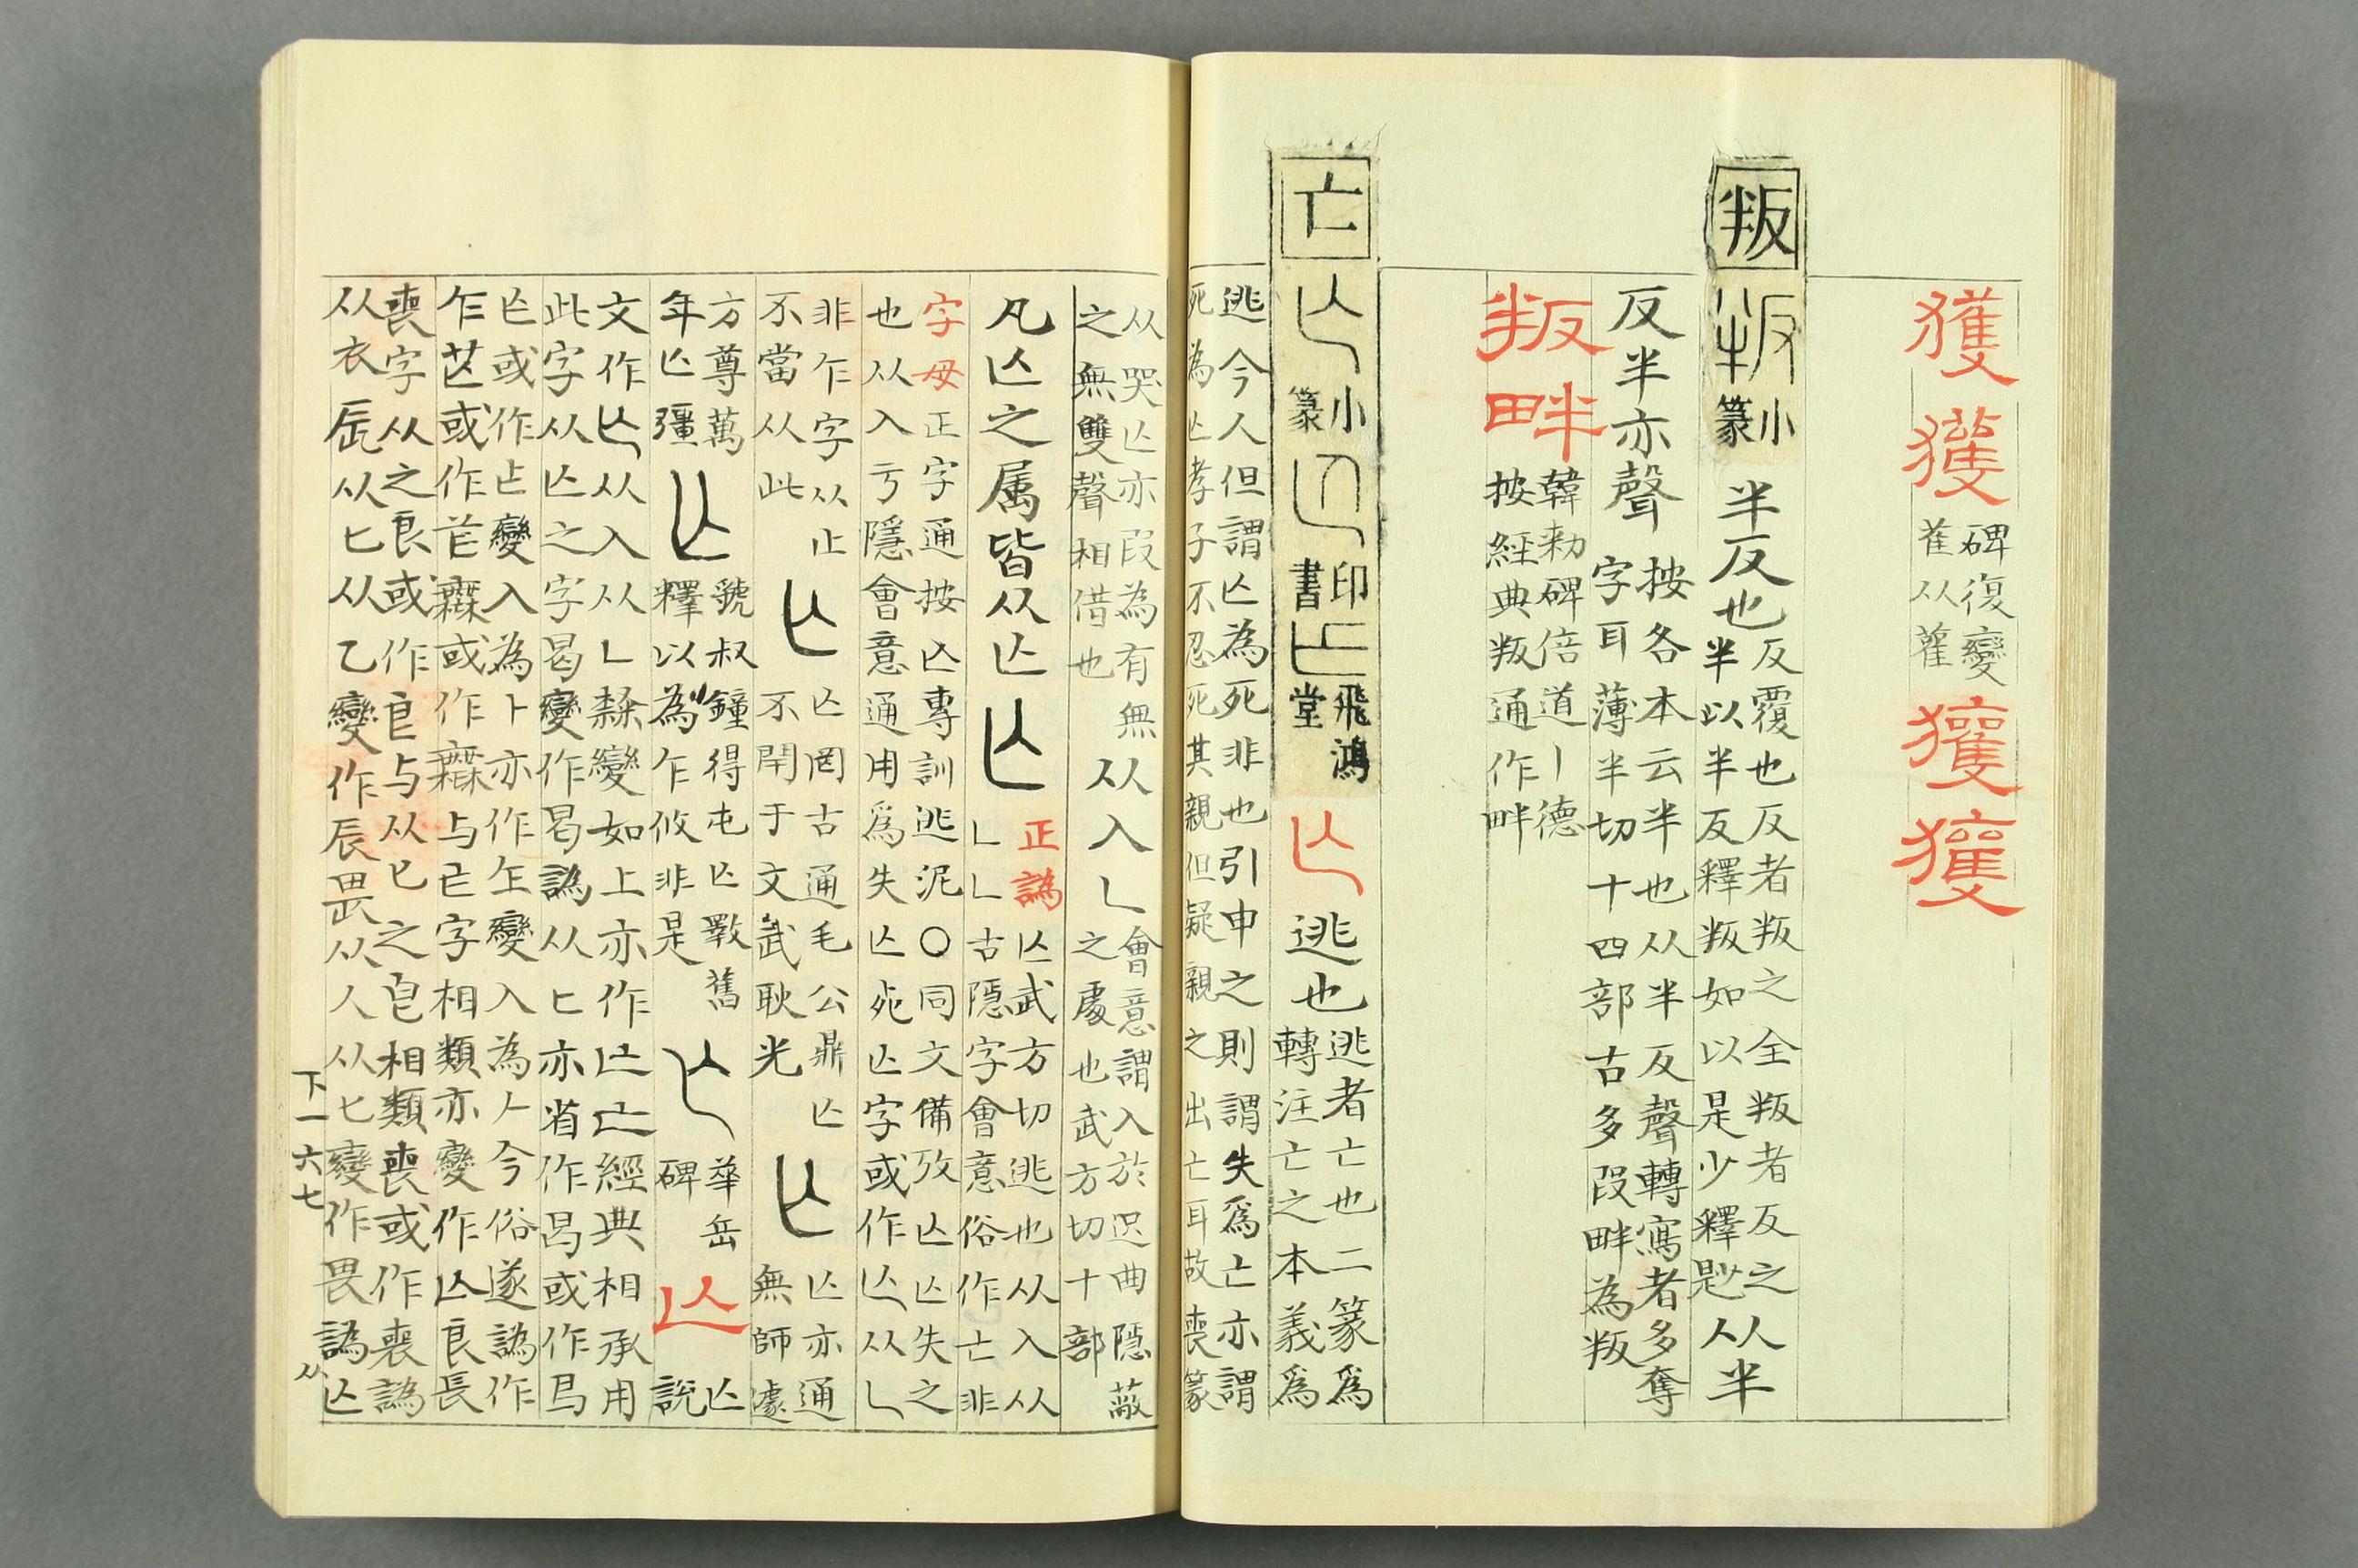 獲 獲 碑復變
萑从雚 獲 獲
叛 叛 小
篆 半反也 反覆也反者叛之全叛者反之
半以半反釋叛如以是少釋尟 从半
反半亦聲 按各本云半也从半反聲轉寫者多奪
字耳薄半切十四部古多叚畔為叛
叛畔 韓勑碑倍道丨德
按經典叛通作畔
亡 亾 小
篆 印
書 飛鴻
堂 亾 逃也 逃者亡也二篆爲
轉注亡之本義爲
逃今人但謂亾為死非也引申之則謂失爲亡亦謂
死為亾孝子不忍死其親但疑親之出亡耳故喪篆
从哭亾亦叚為有無
之無雙聲相借也 从入乚 會意謂入於迟曲隱蔽
之處也武方切十部
凡亾之属皆从亾 亾 正譌 亾武方切逃也从入从
乚乚古隱字會意俗作亡非
字母 正字通按亾專訓逃泥〇同文備攷亾亾失之
也从入亏隱會意通用爲失亾死亾字或作亾从乚
非乍字从止
不當从此 亾 亾罔古通毛公鼎亾
不閈于文武耿光 亾 亾亦通
無師遽
方尊萬
年亾彊 亾 虢叔鐘得屯亾斁舊
釋以為乍攸非是 亾 華岳
碑 亾 亾
說
文作亾从入从乚隸變如上亦作亡亡經典相承用
此字从亾之字曷變作曷譌从匕亦省作曷或作
亾或作亾變入為卜亦作亾變入為𠂉今俗遂譌作
乍芒或作芒或作與亡字相類亦變作亾良長
喪字从之良或作良与从皀之皀相類喪或作喪譌
从衣辰从匕从乙變作辰畏从人从匕變作畏譌亾
下一六七
从